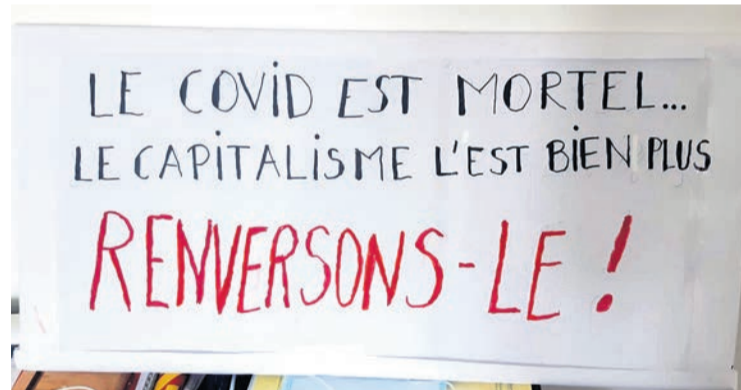 LE COViD EST MORTEL...
LE CAPiTALiSME L'EST BiEN PLUS
RENVERSONS-LE !